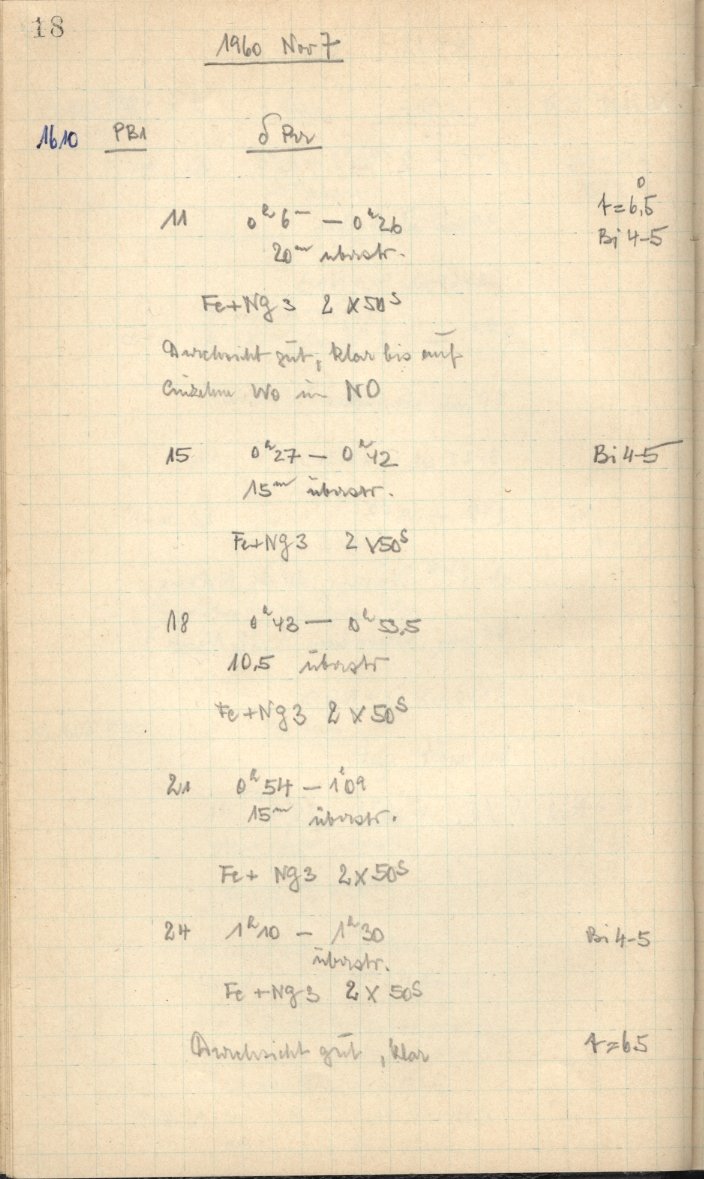 18
1960 Nov 7
1610 PB1 δ Per
11 0ʰ6ᵐ — 0ʰ26
t=6,5°
20ᵐ überstr.
Bi 4-5
Fe+Ng 3 2 x 50ˢ
Durchsicht gut, klar bis auf
Einzelne Wo im NO
15 0ʰ27 — 0ʰ42 Bi 4-5
15ᵐ überstr.
Fe+Ng 3 2 x 50ˢ
18 0ʰ43 — 0ʰ53,5
10,5 überstr
Fe+Ng 3 2 x 50ˢ
21 0ʰ54 — 1ʰ09
15ᵐ überstr.
Fe+ Ng 3 2 x 50ˢ
24 1ʰ10 — 1ʰ30 Bi 4-5
überstr.
Fe+Ng 3 2 x 50ˢ
Durchsicht gut, klar t=65